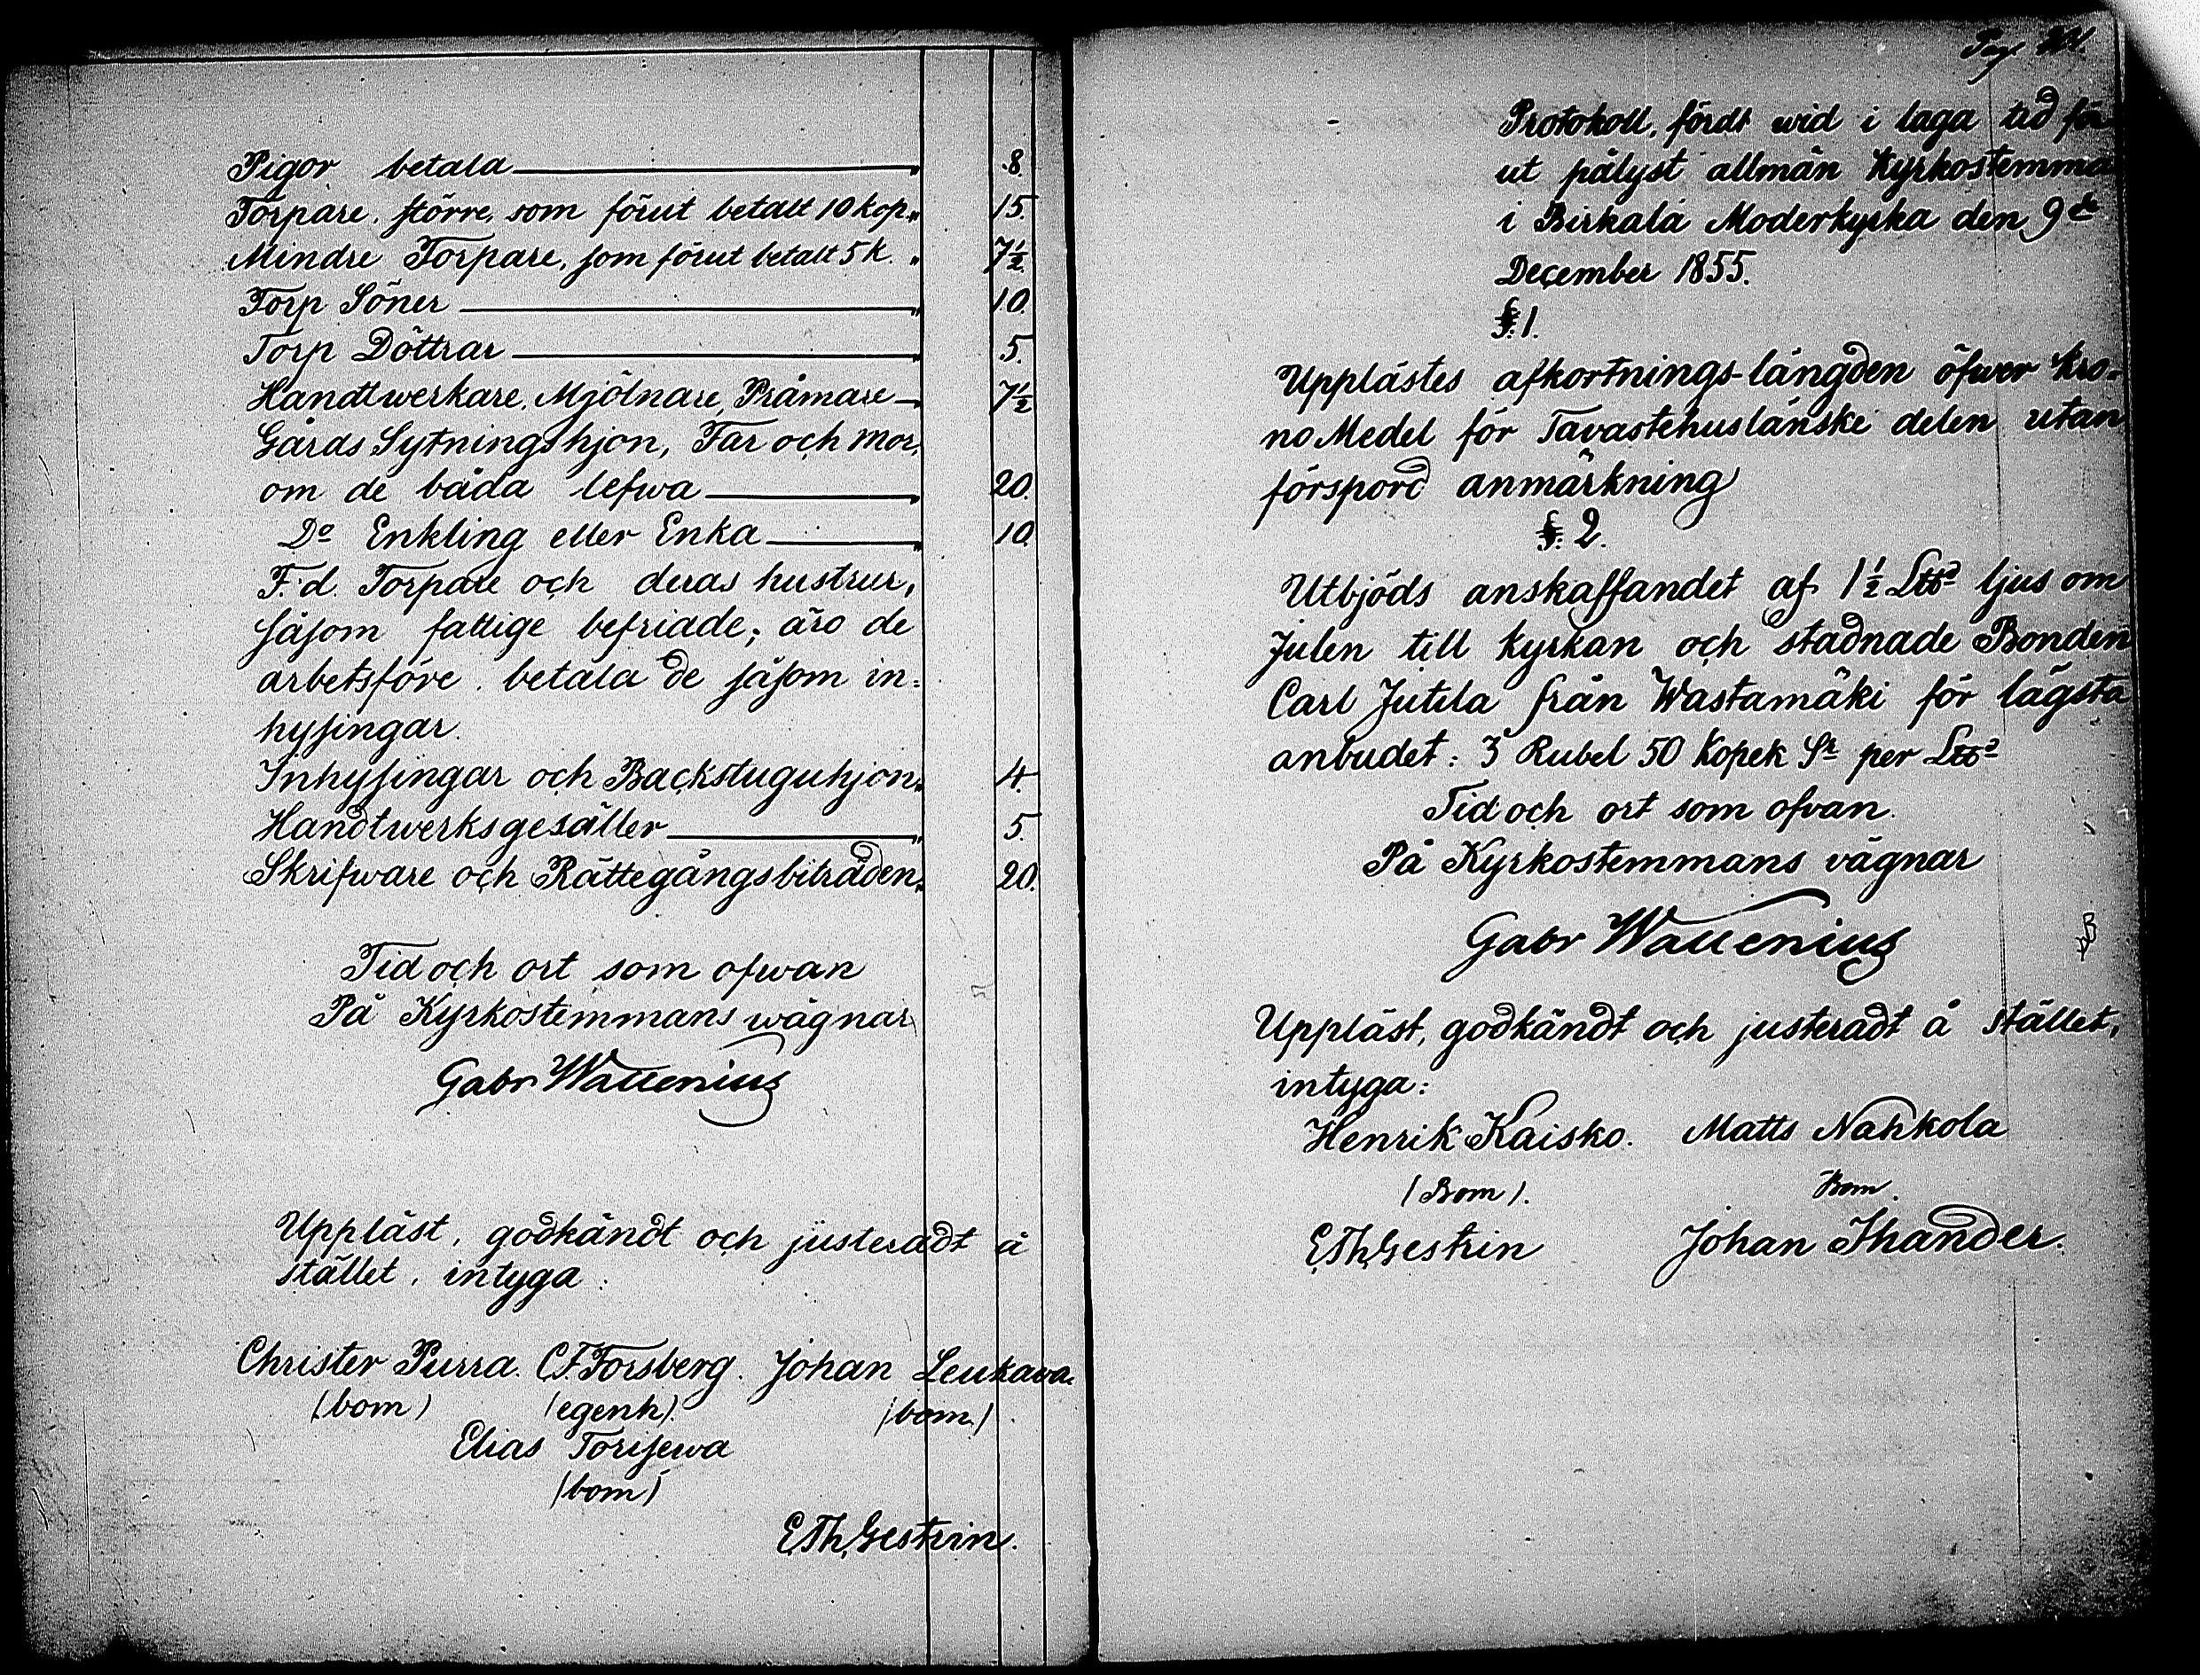 Pigor betala — „ 8.
Torpare, större, som förut betalt 10 kop. „ 15.
Mindre Torpare, som förut betalt 5 k. „ 7½
Torp Söner — „ 10.
Torp Döttrar — „ 5.
Handtwerkare, Mjölnare, Pråmare — „ 7½
Gårds Sytningshjon, Far och mor,
om de båda lefwa — „ 20.
Do Enkling eller Enka — „ 10.
F. d. Torpare och deras hustrur,
såsom fattige befriade; äro de
arbetsföre, betala de såsom in=
hysingar.
Inhysingar och Backstuguhjon „ 4.
Handtwerksgesäller — „ 5.
Skrifware och Rättegångsbiträden „ 20.
Tid och ort som ofwan
På Kyrkostemmans wägnar
Gabr Wallenius
Uppläst, godkändt och justeradt å
stället, intyga:
Christer Purra. C.F. Forsberg. Johan Leukawa.
(bom) (egenh). (bom.)
Elias Torisewa
(bom)
E.Th.Gestrin.
Pag.
Protokoll, fördt wid i laga tid för
ut pålyst allmän Kyrkostemma
i Birkala Moderkyrka den 9de
December 1855.
§. 1.
Upplästes afkortnings-längden öfwer kro-
no Medel för Tavastehuslänske delen utan
förspord anmärkning
§. 2.
Utbjöds anskaffandet af 1½ L℔d ljus om
Julen till kyrkan och stadnade Bonden
Carl Jutila från Wastamäki för lägsta
anbudet: 3 Rubel 50 Kopek Sr per L℔d
Tid och ort som ofvan.
På Kyrkostemmans vägnar
Gabr Wallenius
Uppläst, godkändt och justeradt å stället,
intyga:
Henrik Kaisko. Matts Nahkola
(Bom). Bom.
E.Th.Gestrin Johan Ihander.